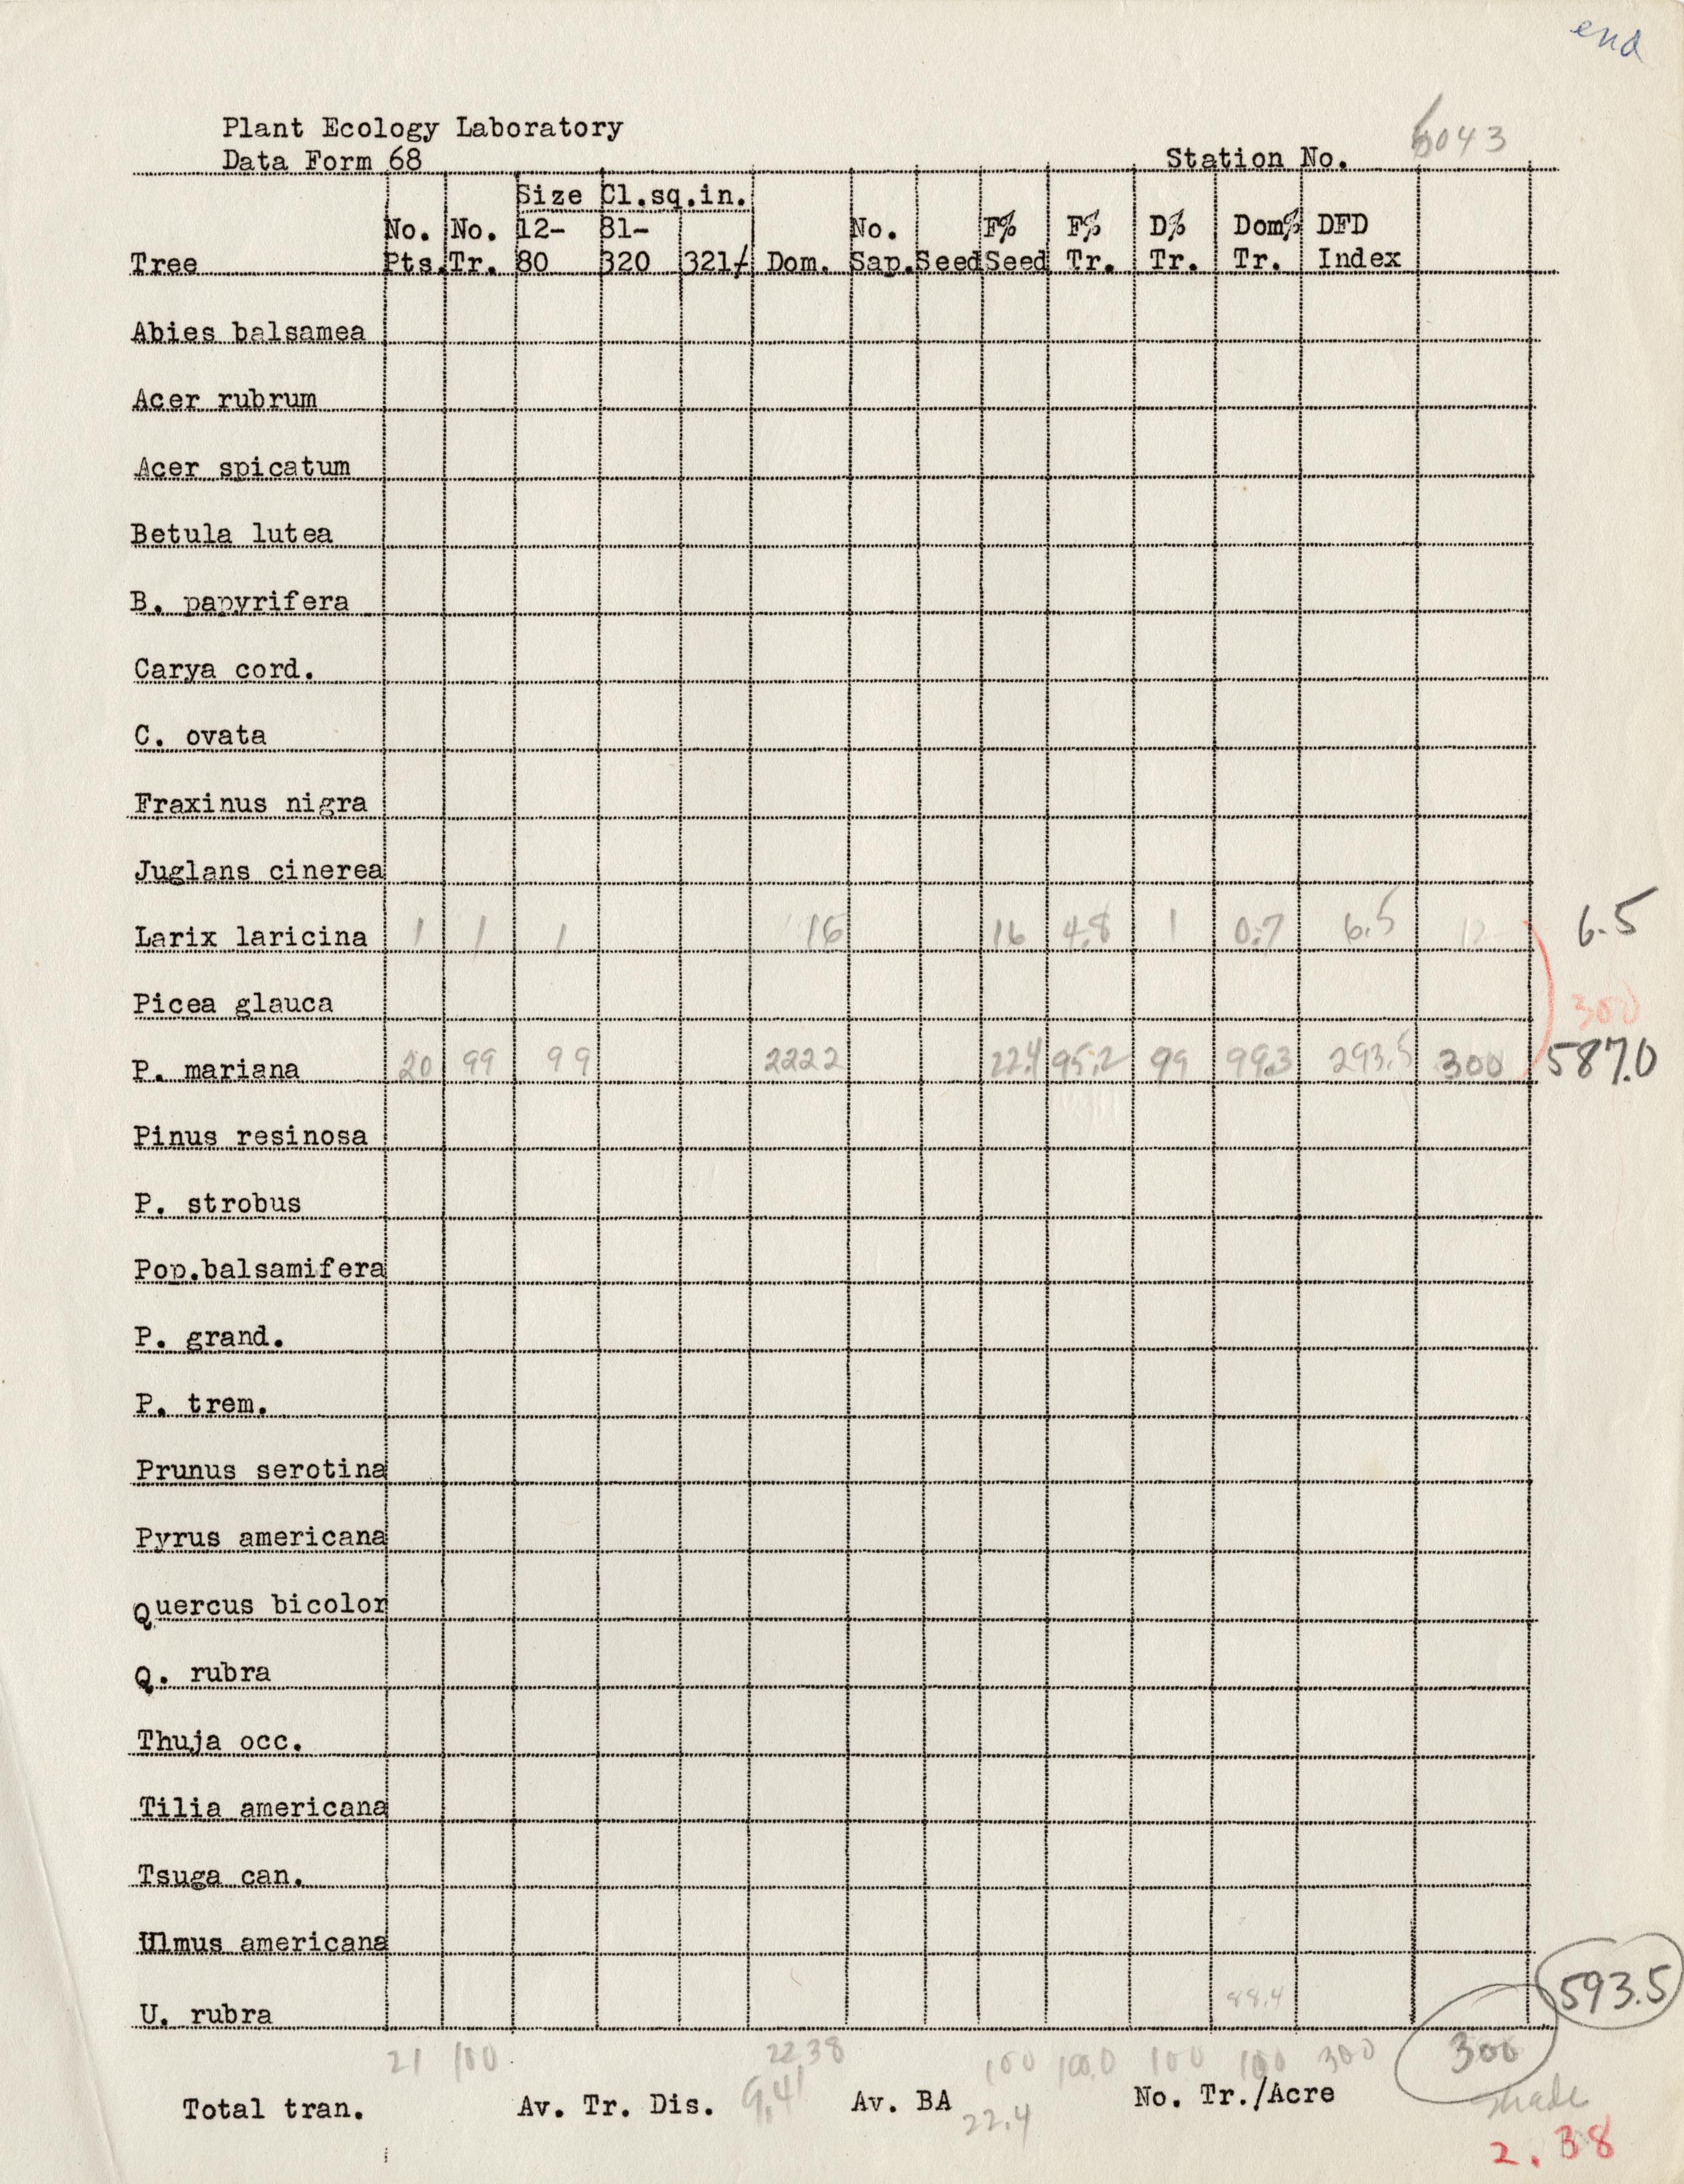 end
Plant Ecology Laboratory
Data Form 68 Station No. 6043
Size Cl.sq.in.
No. No. 12- 81- No. F% F% D% Dom% DFD
Tree Pts. Tr. 80 320 321/ Dom. Sap. Seed Seed Tr. Tr. Tr. Index
Abies balsamea
Acer rubrum
Acer spicatum
Betula lutea
B. papyrifera
Carya cord.
C. ovata
Fraxinus nigra
Juglans cinerea
Larix laricina 1 1 1 16 16 4.8 1 0.7 6.5 12 6.5
Picea glauca 300
P. mariana 20 99 99 2222 22.4 95.2 99 99.3 293.5 300 587.0
Pinus resinosa
P. strobus
Pop.balsamifera
P. grand.
P. trem.
Prunus serotina
Pyrus americana
Quercus bicolor
Q. rubra
Thuja occ.
Tilia americana
Tsuga can.
Ulmus americana
593.5
U. rubra 88.4
21 100 2238 100 100.0 100 100 300 300
Total tran. Av. Tr. Dis. 9.41 Av. BA 22.4 No. Tr./Acre shade
2.38